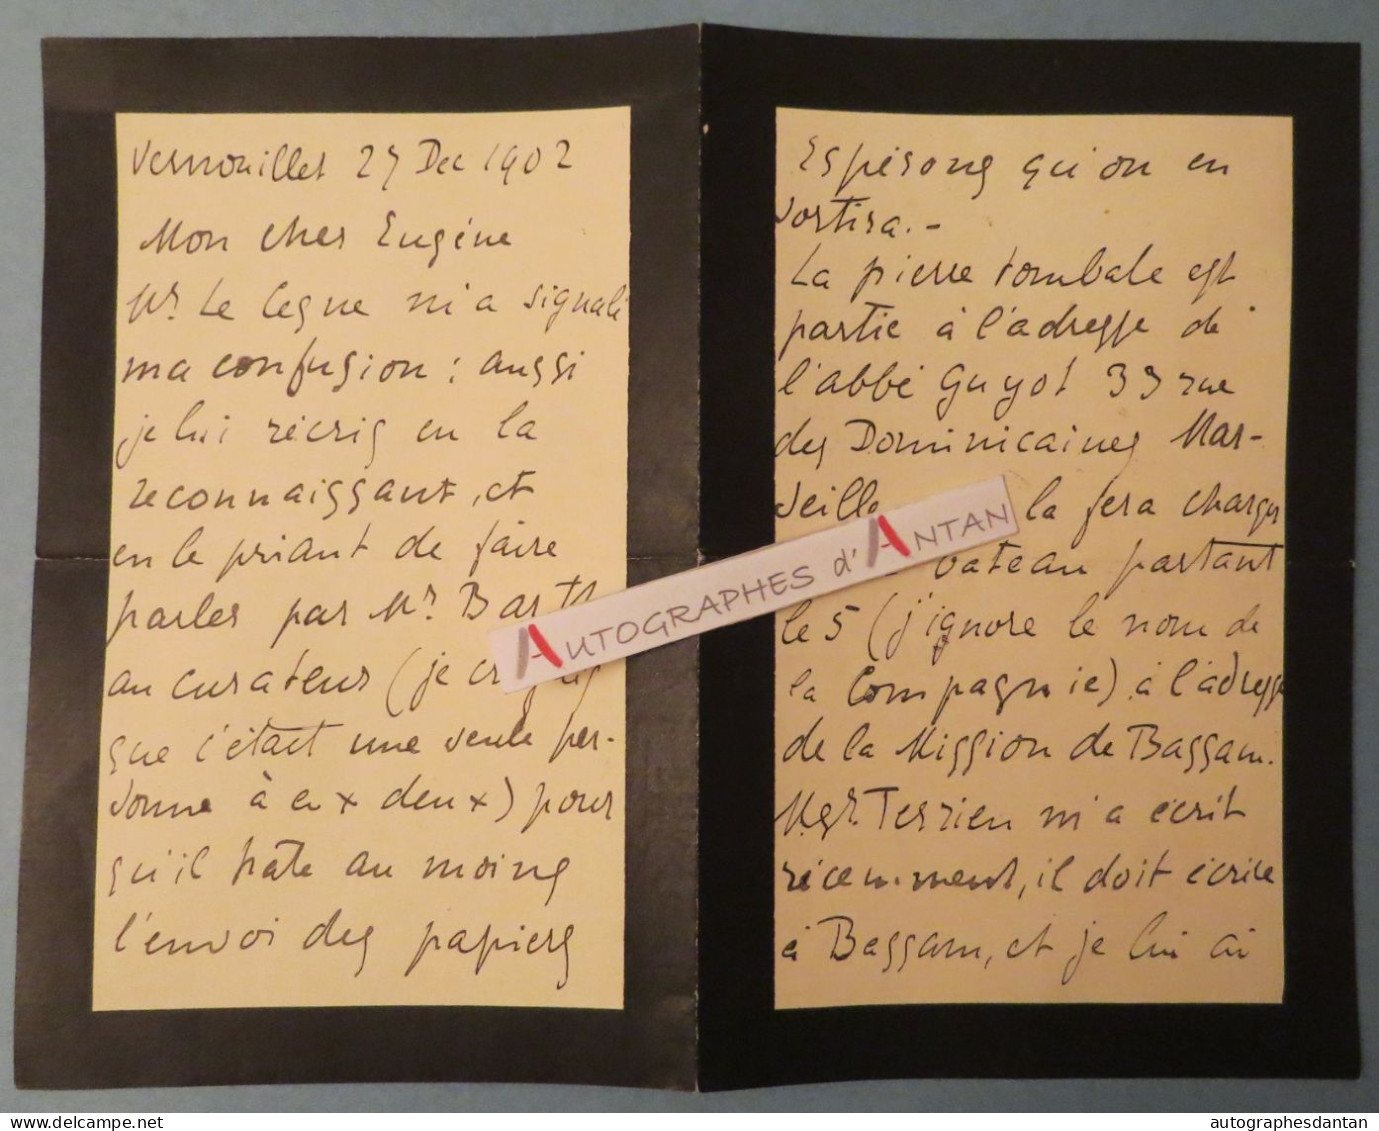 Vernouillet 27 Dec 1902
Mon cher Eugène
Mr. Le Cesne m'a signalé
ma confusion : aussi
je lui récris en le
reconnaissant, et
en le priant de faire
parler par Mr. Barth
au curateur (je croyais
que c'était une seule per-
sonne à eux deux) pour
qu'il hâte au moins
l'envoi des papiers
Espérons qu'on en
sortira. -
La pierre tombale est
partie à l'adresse de
l'abbé Guyot 39 rue
des Dominicaines Mar-
seille la fera charger
bateau partant
le 5 (j'ignore le nom de
la Compagnie) à l'adresse
de la Mission de Bassam.
Mgr. Terrien m'a écrit
récemment, il doit écrire
à Bassam, et je lui ai
AUTOGRAPHES d'ANTAN
delcampe.net
autographesdantan